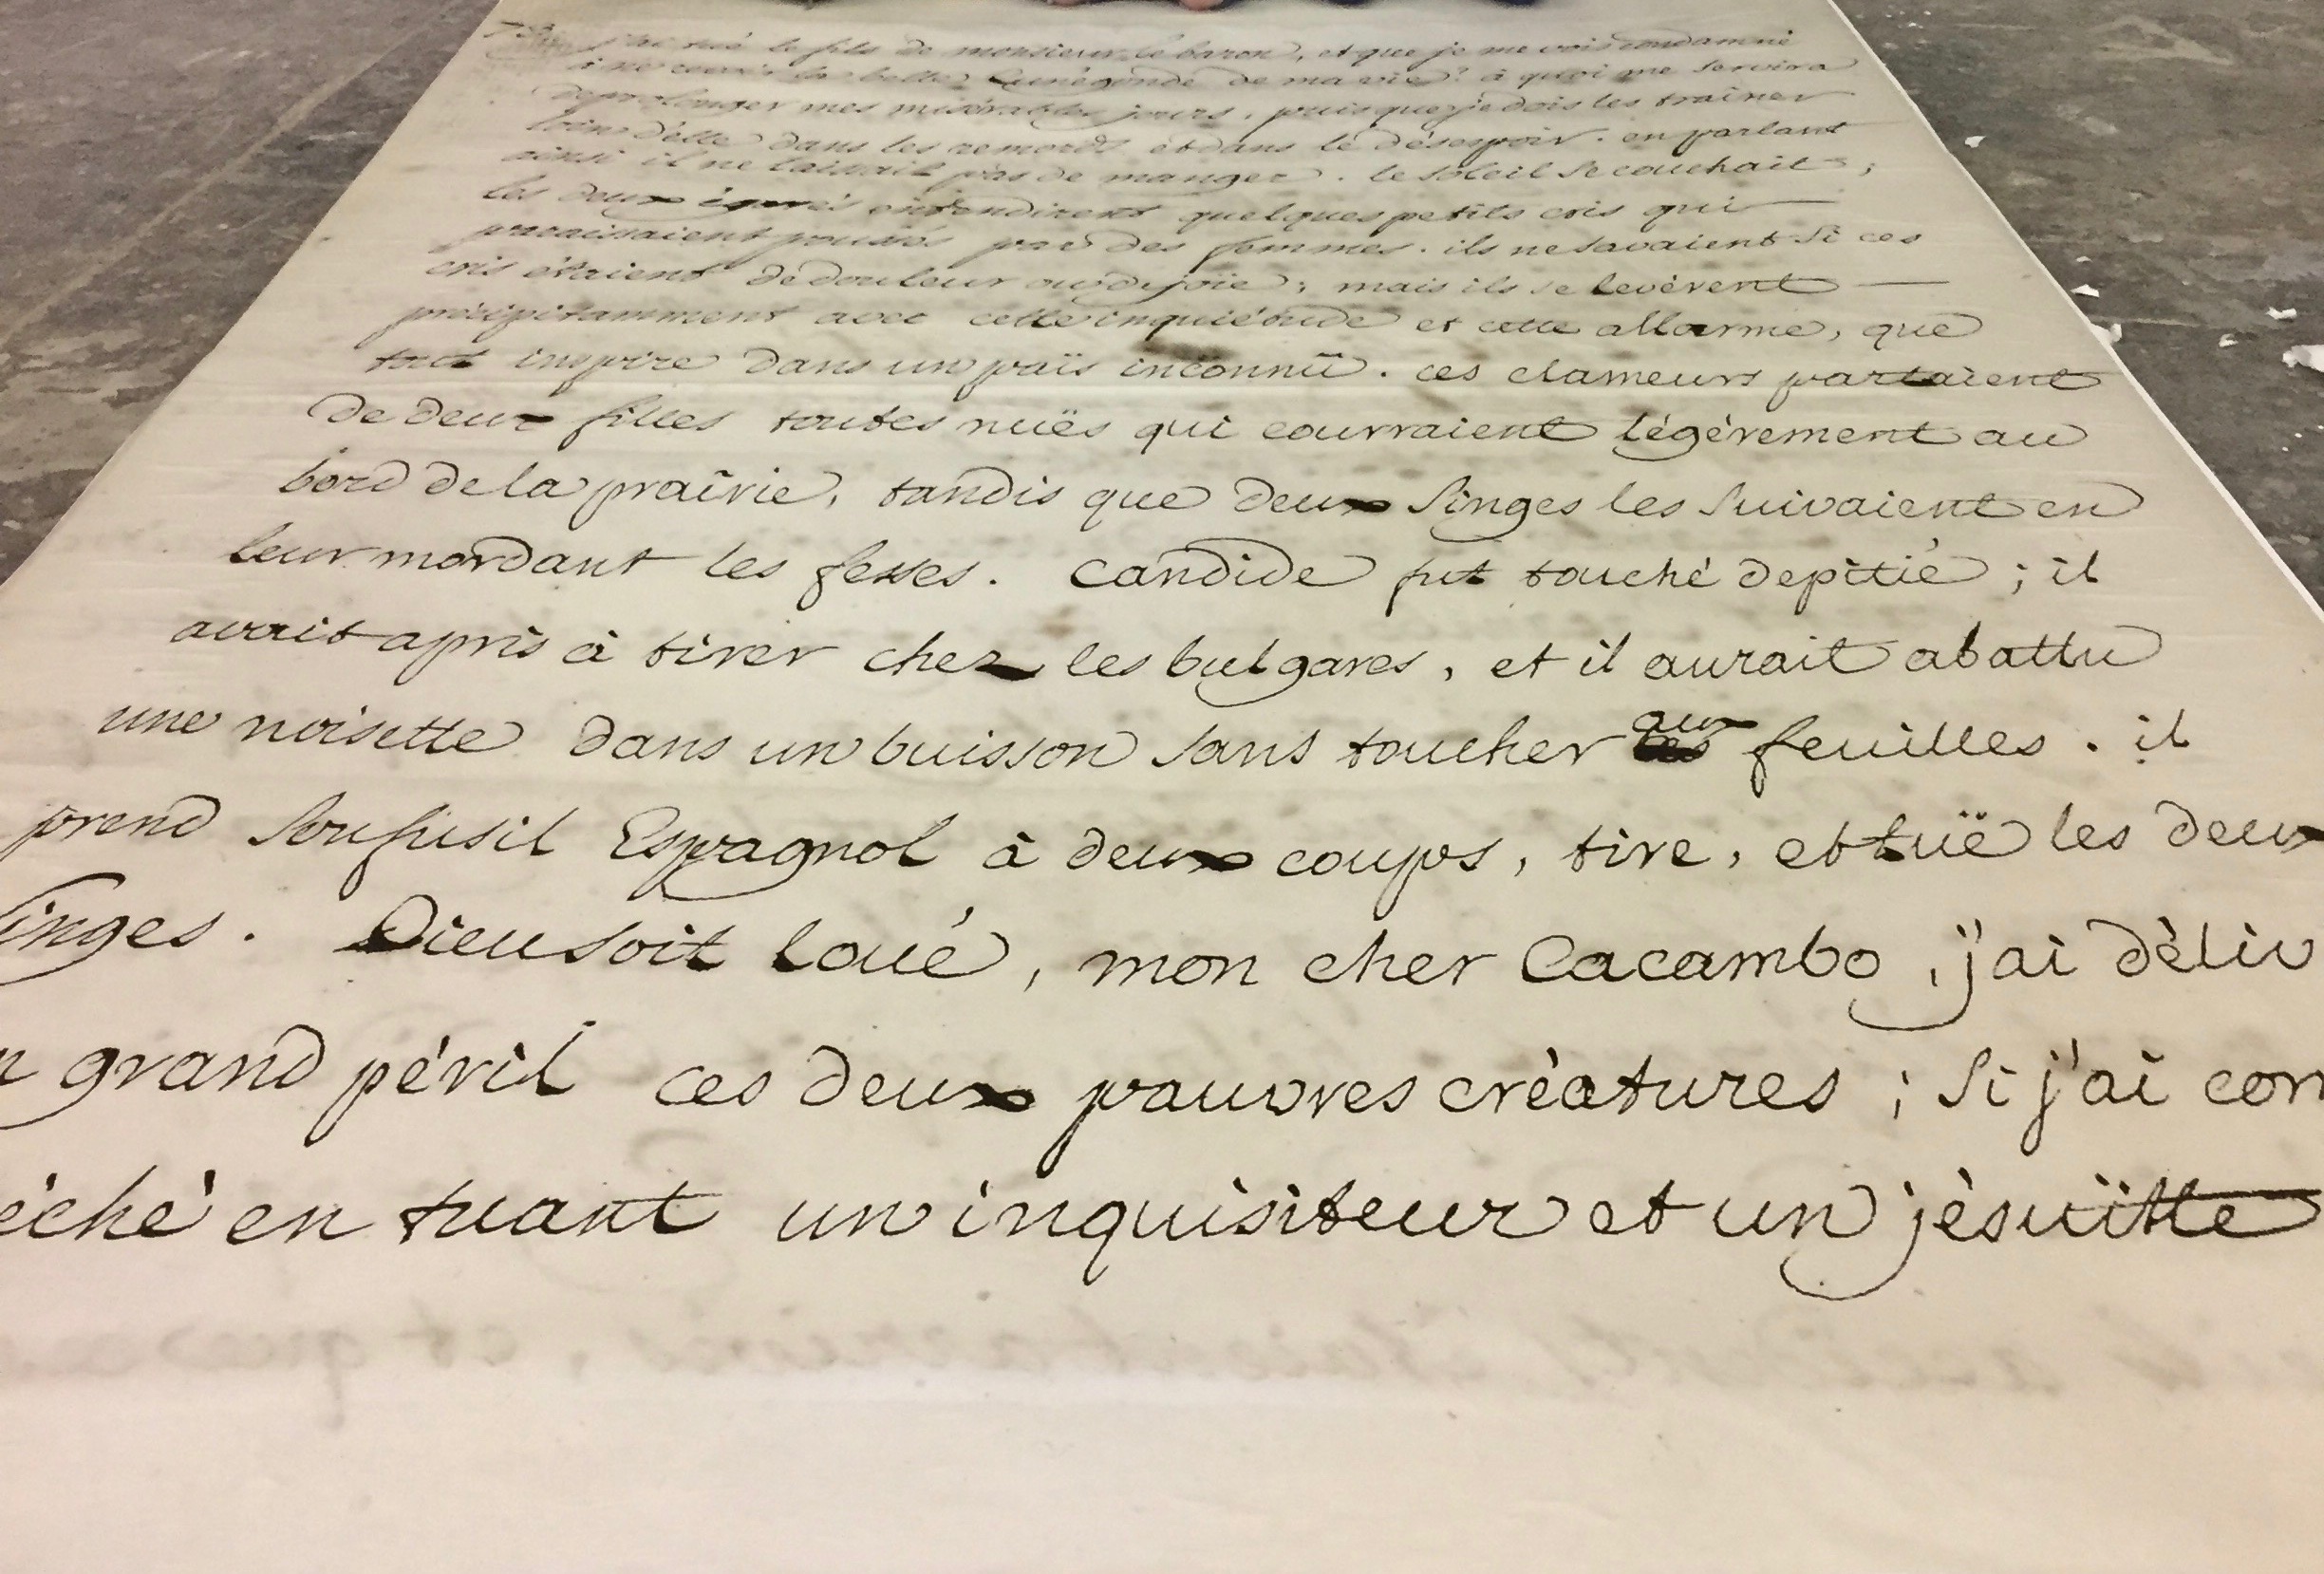 j'ai tué le fils de monsieur le baron, et que je me vois condamné
à ne revoir la belle Cunégonde de ma vie? à quoi me servira
de prolonger mes misérables jours, puisque je dois les traîner
loin d'elle dans les remords et dans le désespoir. en parlant
ainsi il ne laissait pas de manger. le soleil se couchait;
les deux égarés entendirent quelques petits cris qui
paraissaient poussés par des femmes. ils ne savaient si ces
cris étaient de douleur ou de joïe; mais ils se levèrent
précipitamment avec cette inquiétude et cette allarme, que
tout inspire dans un païs inconnû. ces clameurs partaient
de deux filles toutes nuës qui courraient légérement au
bord de la prairie, tandis que deux singes les suivaient en
leur mordant les fesses. Candide fut touché de pitié; il
avait apris à tirer chez les bulgares, et il aurait abattu
une noisette dans un buisson sans toucher aux feuilles. il
prend son fusil Espagnol à deux coups, tire, et tuë les deux
singes. Dieu soit loué, mon cher Cacambo, j'ai déliv
n grand péril ces deux pauvres créatures; si j'ai com
éché en tuant un inquisiteur et un jésuïtte